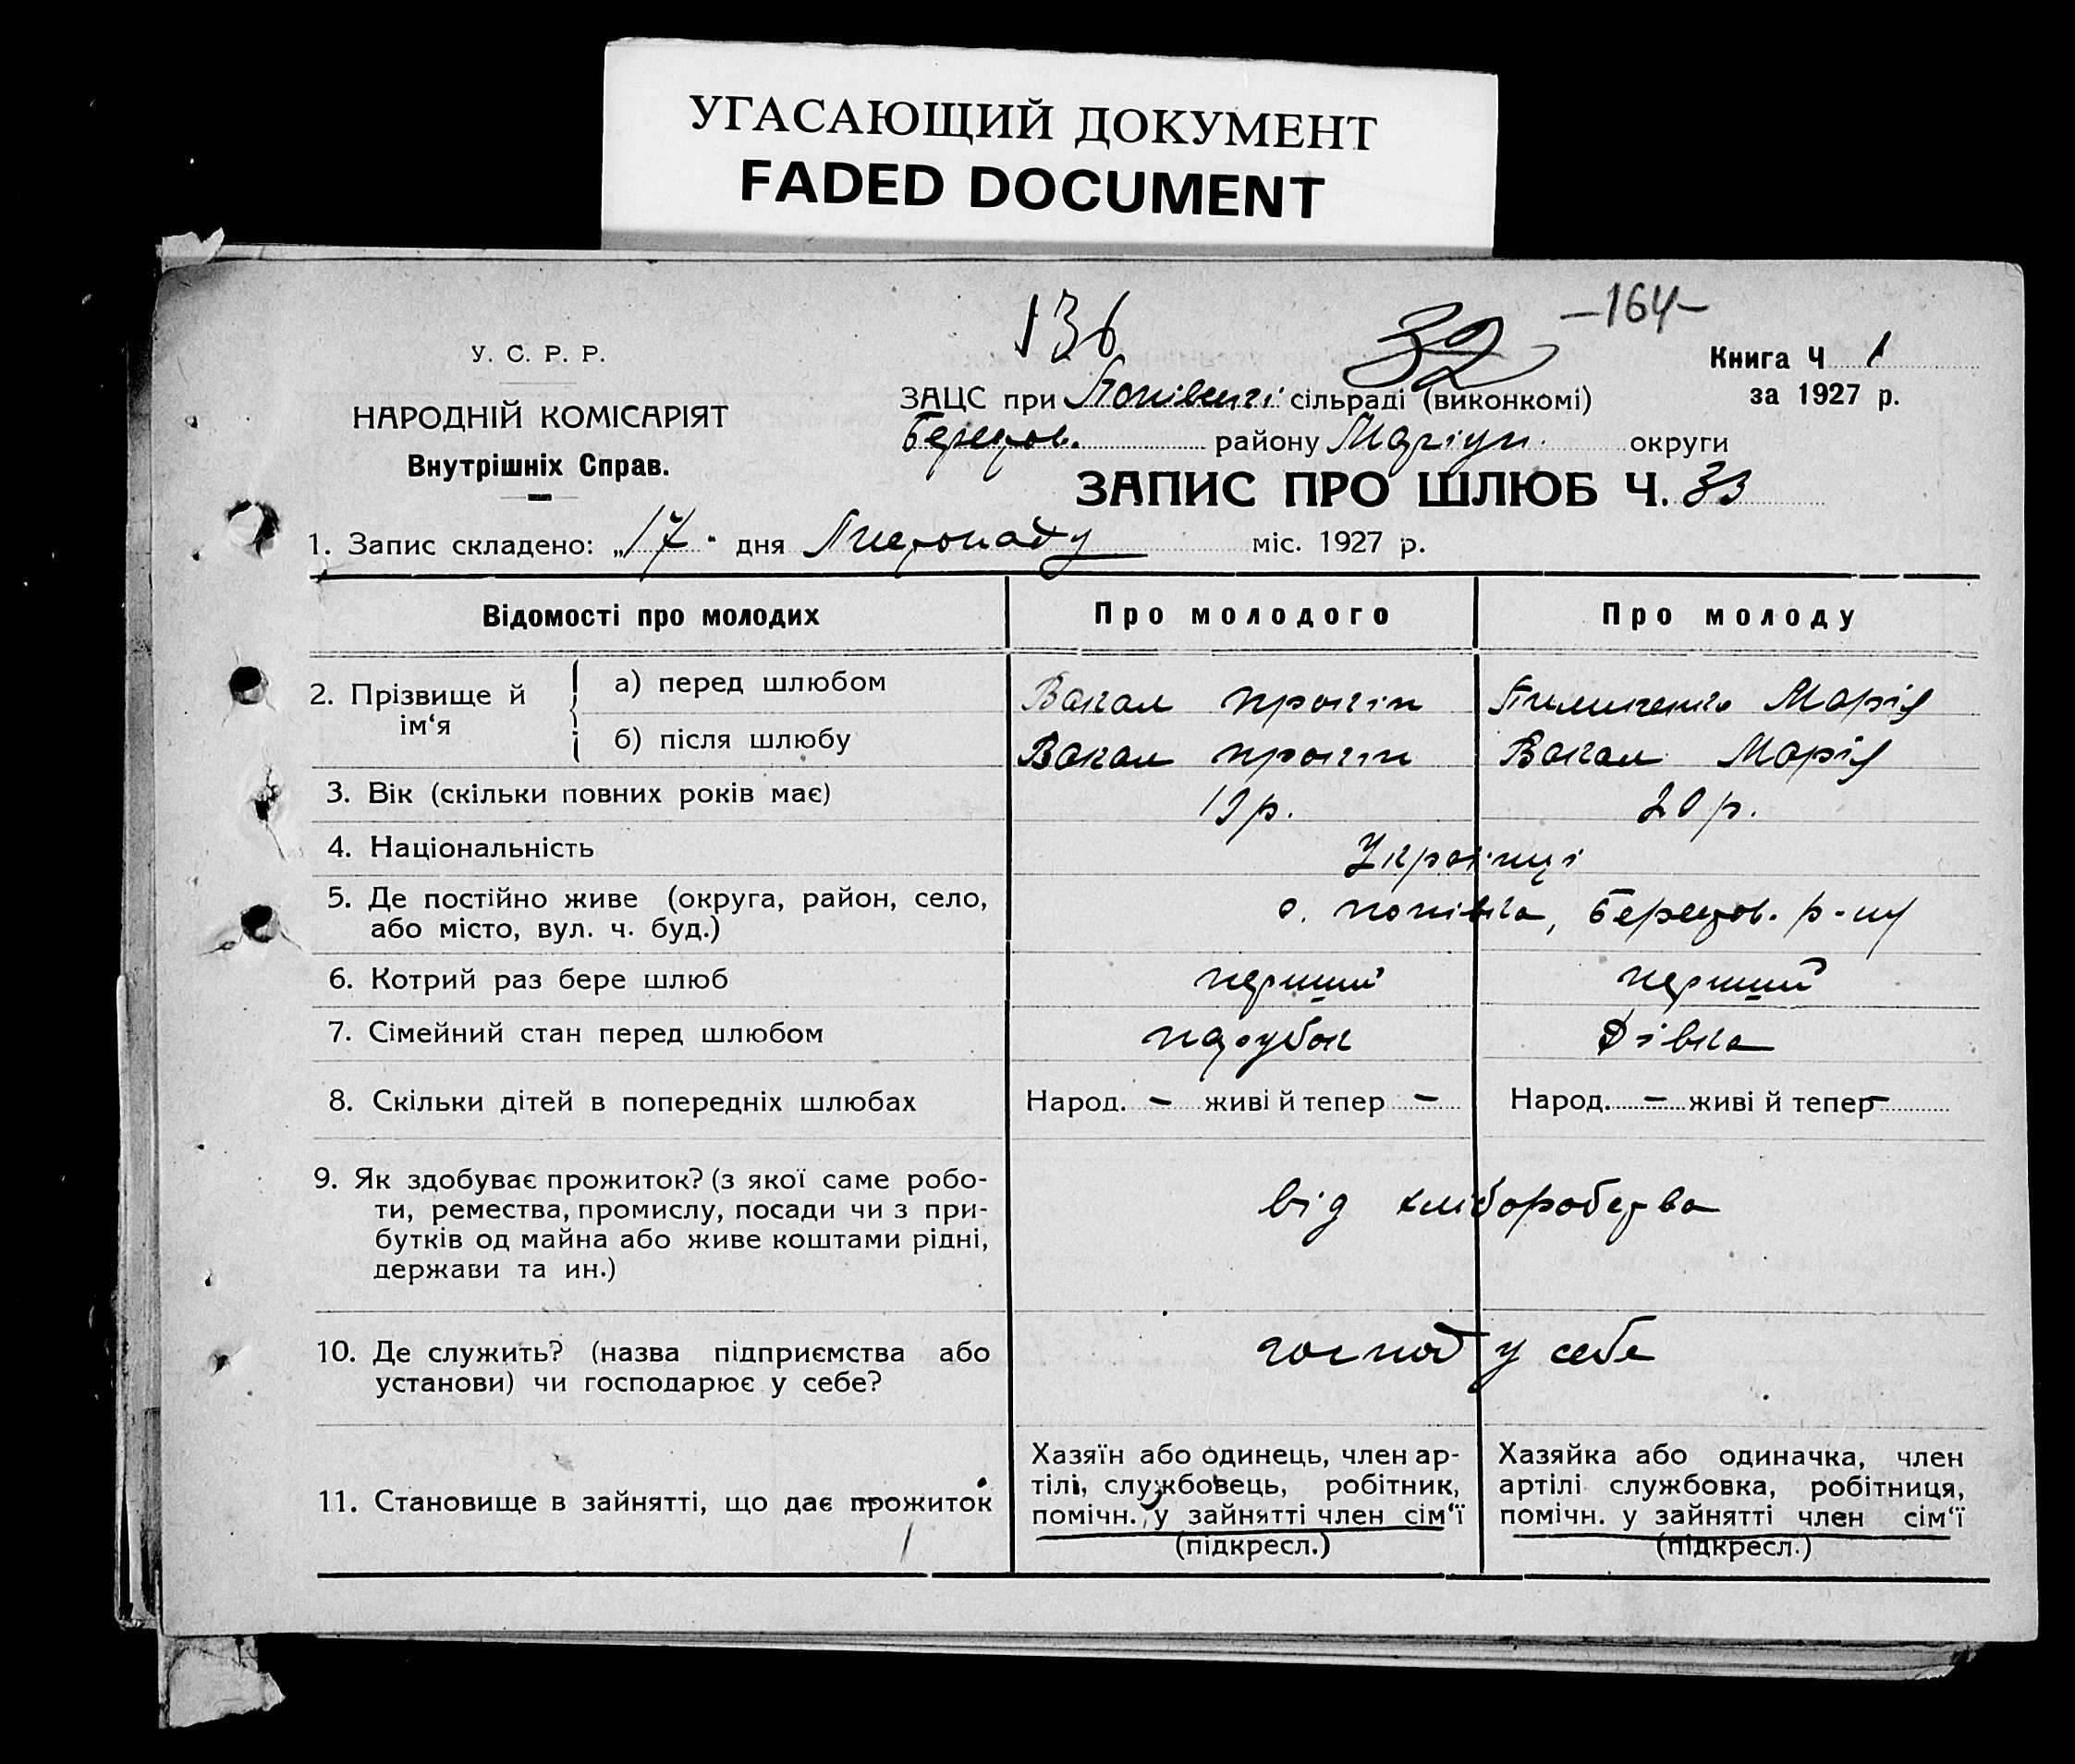 УГАСАЮЩИЙ ДОКУМЕНТ
FADED DOCUMENT
136
32
—164—
У. С. Р. Р.
НАРОДНІЙ КОМІСАРІЯТ
Внутрішніх Справ.
Книга Ч 1
за 1927 р.
ЗАЦС при Попівській сільраді (виконкомі)
Берестов. району Маріуп. округи
ЗАПИС ПРО ШЛЮБ Ч. 33
1. Запис складено: „17“ дня Листопаду міс. 1927 р.
Відомості про молодих Про молодого Про молоду
2. Прізвище й ім‘я
а) перед шлюбом Вакал Марія
б) після шлюбу Вакал Вакал Марія
3. Вік (скільки повних років має) 19 р. 20 р.
4. Національність Українці
5. Де постійно живе (округа, район, село,
або місто, вул. ч. буд.) с. Попівка, Берестов. р-ну
6. Котрий раз бере шлюб перший перший
7. Сімейний стан перед шлюбом парубок Дівка
8. Скільки дітей в попередніх шлюбах Народ. — живі й тепер — Народ. — живі й тепер —
9. Як здобуває прожиток? (з якої саме робо-
ти, ремества, промислу, посади чи з при-
бутків од майна або живе коштами рідні,
держави та ин.)
від хліборобства
10. Де служить? (назва підприємства або
установи) чи господарює у себе?
господ у себе
11. Становище в зайнятті, що дає прожиток
Хазяїн або одинець, член ар-
тілі, службовець, робітник,
помічн. у зайнятті член сім‘ї
(підкресл.)
Хазяйка або одиначка, член
артілі службовка, робітниця,
помічн. у зайнятті член сім‘ї
(підкресл.)